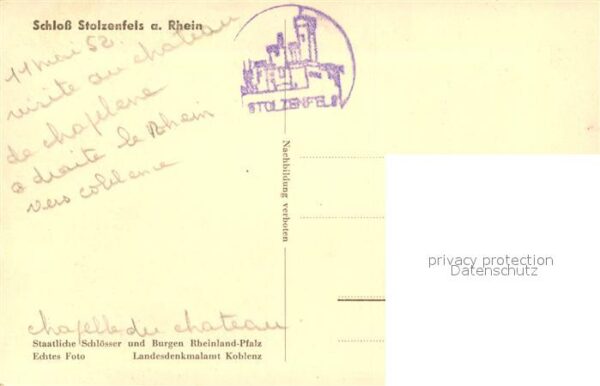 Schloß Stolzenfels a. Rhein
11 mai 52
visite au chateau
de chapelene
a droite le Rhein
vers coblence
STOLZENFELS
Nachbildung verboten
privacy protection
Datenschutz
chapelle du chateau
Staatliche Schlösser und Burgen Rheinland-Pfalz
Echtes Foto Landesdenkmalamt Koblenz